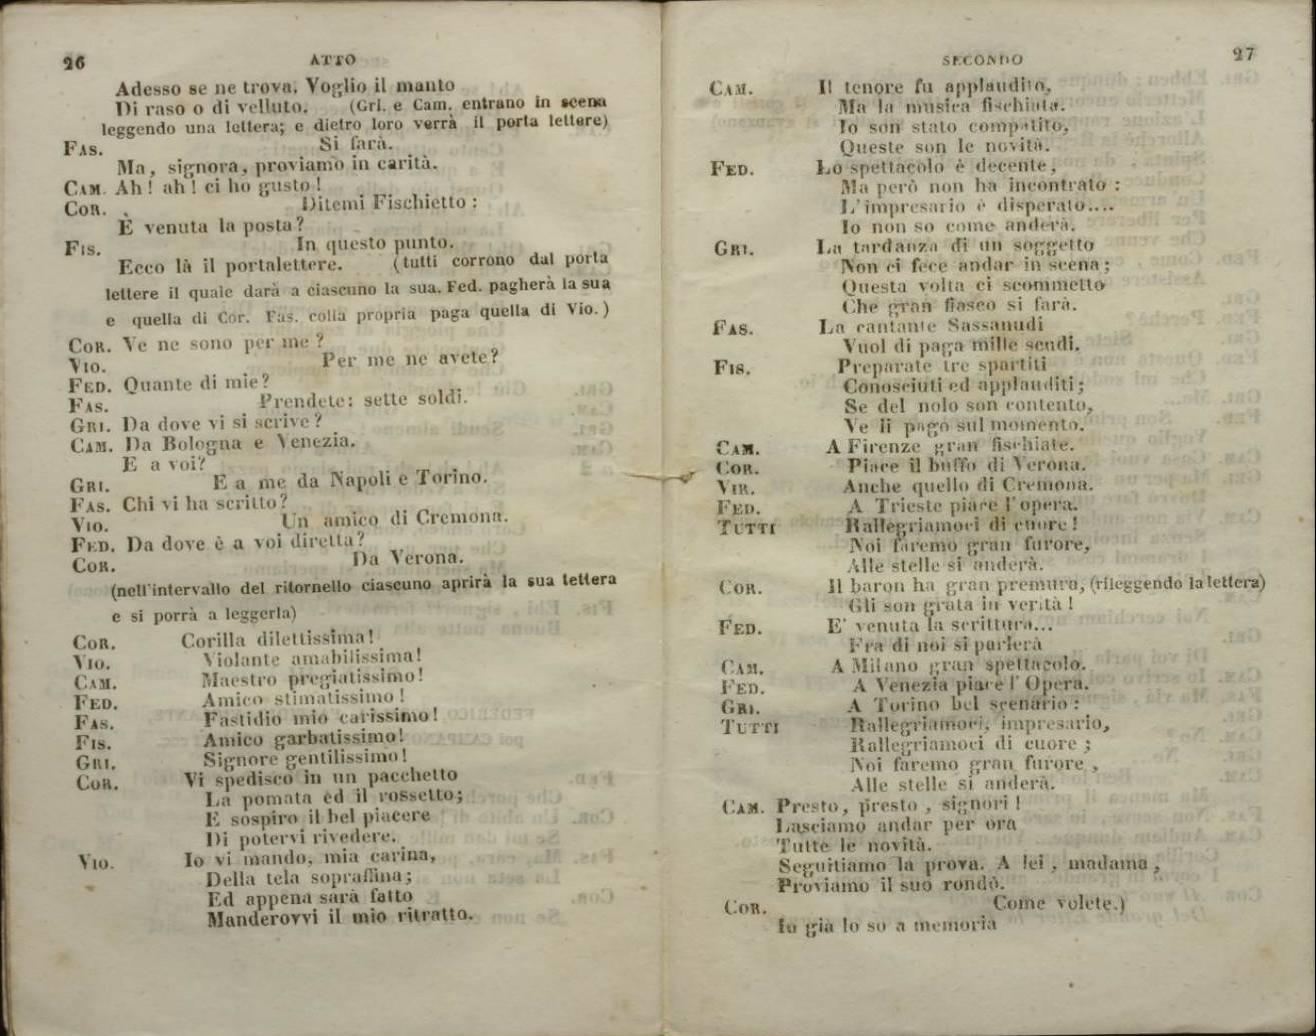 26
ATTO
Adesso se ne trova. Voglio il manto
Di raso o di velluto. (Gri. e Cam. entrano in scena
leggendo una lettera; e dietro loro verrà il porta lettere)
FAS. Si farà.
Ma, signora, proviamo in carità.
CAM. Ah! ah! ci ho gusto!
COR. Ditemi Fischietto:
È venuta la posta?
FIS. In questo punto.
Ecco là il portalettere. (tutti corrono dal porta
lettere il quale darà a ciascuno la sua. Fed. pagherà la sua
e quella di Cor. Fas. colla propria paga quella di Vio.)
COR. Ve ne sono per me?
VIO. Per me ne avete?
FED. Quante di mie?
FAS. Prendete: sette soldi.
GRI. Da dove vi si scrive?
CAM. Da Bologna e Venezia.
E a voi?
GRI. E a me da Napoli e Torino.
FAS. Chi vi ha scritto?
VIO. Un amico di Cremona.
FED. Da dove è a voi diretta?
COR. Da Verona.
(nell'intervallo del ritornello ciascuno aprirà la sua lettera
e si porrà a leggerla)
COR. Corilla dilettissima!
VIO. Violante amabilissima!
CAM. Maestro pregiatissimo!
FED. Amico stimatissimo!
FAS. Fastidio mio carissimo!
FIS. Amico garbatissimo!
GRI. Signore gentilissimo!
COR. Vi spedisco in un pacchetto
La pomata ed il rossetto;
E sospiro il bel piacere
Di potervi rivedere.
VIO. Io vi mando, mia carina,
Della tela sopraffina;
Ed appena sarà fatto
Manderovvi il mio ritratto.
SECONDO
27
CAM. Il tenore fu applaudito,
Ma la musica fischiata.
Io son stato compatito,
Queste son le novità.
FED. Lo spettacolo è decente,
Ma però non ha incontrato:
L'impresario è disperato....
Io non so come anderà.
GRI. La tardanza di un soggetto
Non ci fece andar in scena;
Questa volta ci scommetto
Che gran fiasco si farà.
FAS. La cantante Sassanudi
Vuol di paga mille scudi.
FIS. Preparate tre spartiti
Conosciuti ed applauditi;
Se del nolo son contento,
Ve li pago sul momento.
CAM. A Firenze gran fischiate.
COR. Piace il buffo di Verona.
VIR. Anche quello di Cremona.
FED. A Trieste piace l'opera.
TUTTI Rallegriamoci di cuore!
Noi faremo gran furore,
Alle stelle si anderà.
COR. Il baron ha gran premura, (rileggendo la lettera)
Gli son grata in verità!
FED. E' venuta la scrittura...
Fra di noi si parlerà
CAM. A Milano gran spettacolo.
FED. A Venezia piace l'Opera.
GRI. A Torino bel scenario:
TUTTI Rallegriamoci, impresario,
Rallegriamoci di cuore;
Noi faremo gran furore,
Alle stelle si anderà.
CAM. Presto, presto, signori!
Lasciamo andar per ora
Tutte le novità.
Seguitiamo la prova. A lei, madama,
Proviamo il suo rondò.
COR. Come volete.)
Io già lo so a memoria